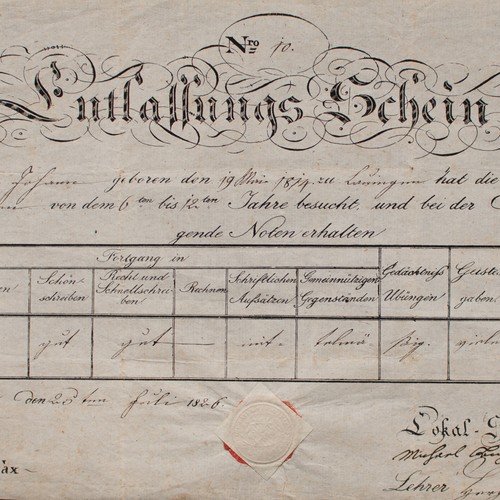 Nro 10.
Entlassungs Schein
Johann geboren den 19 Mai 1814 zu Lauingen hat die
von dem 6ten bis 12ten Jahre besucht, und bei der
gende Noten erhalten
Fortgang in
Schön-schreiben
Recht und Schnellschrei-ben
Rechnen
Schriftlichen Aufsätzen
Gemeinnützigen Gegenständen
Gedächtniß Übungen
gut gut mit- telmä- ßig.
den 25ten Juli 1826.
Lokal-
Michael
Lehrer